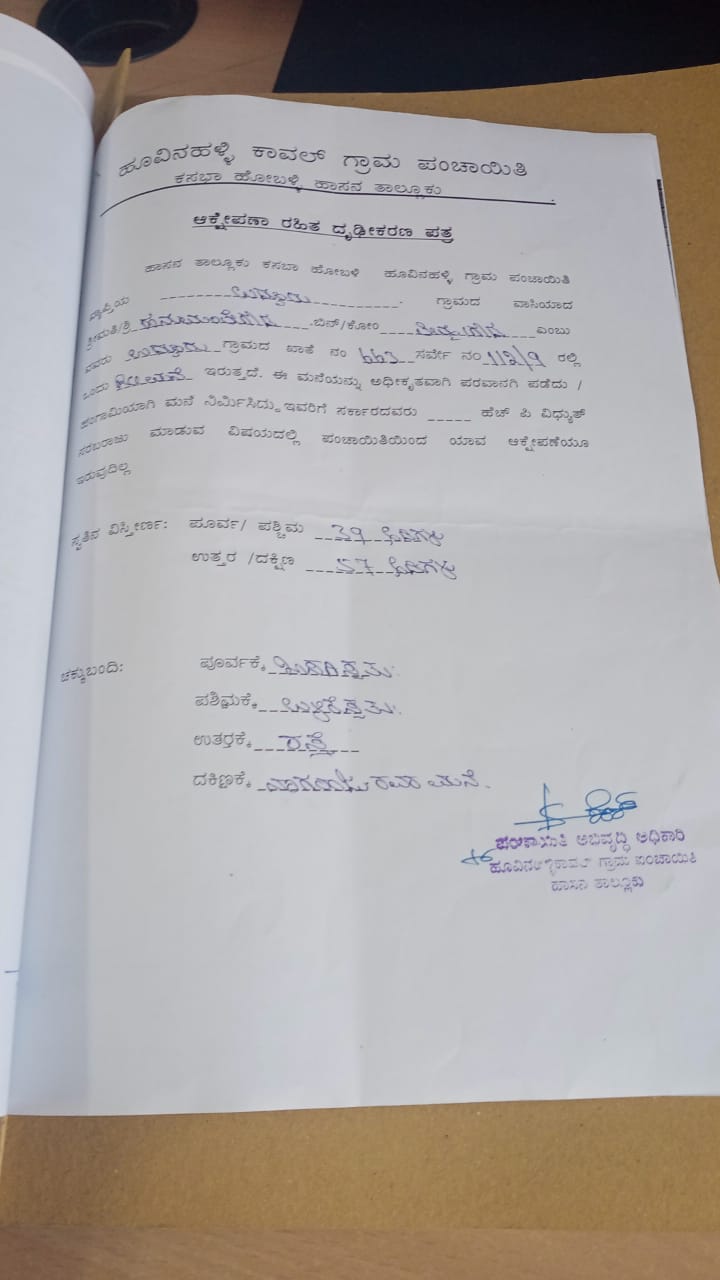 ಹೂವಿನಹಳ್ಳಿ ಕಾವಲ್ ಗ್ರಾಮ ಪಂಚಾಯಿತಿ
ಕಸಭಾ ಹೋಬಳ್ಳಿ ಹಾಸನ ತಾಲ್ಲೂಕು
ಆಕ್ಷೇಪಣಾ ರಹಿತ ದೃಢೀಕರಣ ಪತ್ರ
ಹಾಸನ ತಾಲ್ಲೂಕು ಕಸಬಾ ಹೋಬಳಿ ಹೂವಿನಹಳ್ಳಿ ಗ್ರಾಮ ಪಂಚಾಯಿತಿ
ವ್ಯಾಪ್ತಿಯ ಉದ್ದೂರು ಗ್ರಾಮದ ವಾಸಿಯಾದ
ಶ್ರೀಮತಿ/ಶ್ರಿ ಹನುಮಂತೇಗೌಡ .ಬಿನ್/ಕೋಂ ಎಂಬು
ವವರು ಉದ್ದೂರು ಗ್ರಾಮದ ಖಾತೆ ನಂ 663 ಸರ್ವೇ ನಂ 112/9 ರಲ್ಲಿ
ಒಂದು ಇರುತ್ತದೆ. ಈ ಮನೆಯನ್ನು ಅಧೀಕೃತವಾಗಿ ಪರವಾನಗಿ ಪಡೆದು /
ಹಂಗಾಮಿಯಾಗಿ ಮನೆ ನಿರ್ಮಿಸಿದ್ದು ಇವರಿಗೆ ಸರ್ಕಾರದವರು _____ ಹೆಚ್ ಪಿ ವಿಧ್ಯುತ್
ಸರಬರಾಜು ಮಾಡುವ ವಿಷಯದಲ್ಲಿ ಪಂಚಾಯಿತಿಯಿಂದ ಯಾವ ಆಕ್ಷೇಪಣೆಯೂ
ಇರುವುದಿಲ್ಲ
ಸ್ವತಿನ ವಿಸ್ತೀರ್ಣ: ಪೂರ್ವ/ ಪಶ್ಚಿಮ 39 ಅಡಿಗಳು
ಉತ್ತರ /ದಕ್ಷಿಣ 57 ಅಡಿಗಳು
ಚಕ್ಕುಬಂದಿ: ಪೂರ್ವಕ್ಕೆ
ಪಶ್ಚಿಮಕ್ಕೆ
ಉತರ‍್ರಕ್ಕೆ ರಸ್ತೆ
ದಕಿಣ‍್ಷಕ್ಕೆ ನಾಗರಾಜು ರವರ ಮನೆ.
ಪಂಚಾಯಿತಿ ಅಭಿವೃದ್ಧಿ ಅಧಿಕಾರಿ
ಹೂವಿನಹಳ್ಳಿಕಾವಲ್ ಗ್ರಾಮ ಪಂಚಾಯಿತಿ
ಹಾಸನ ತಾಲ್ಲೂಕು